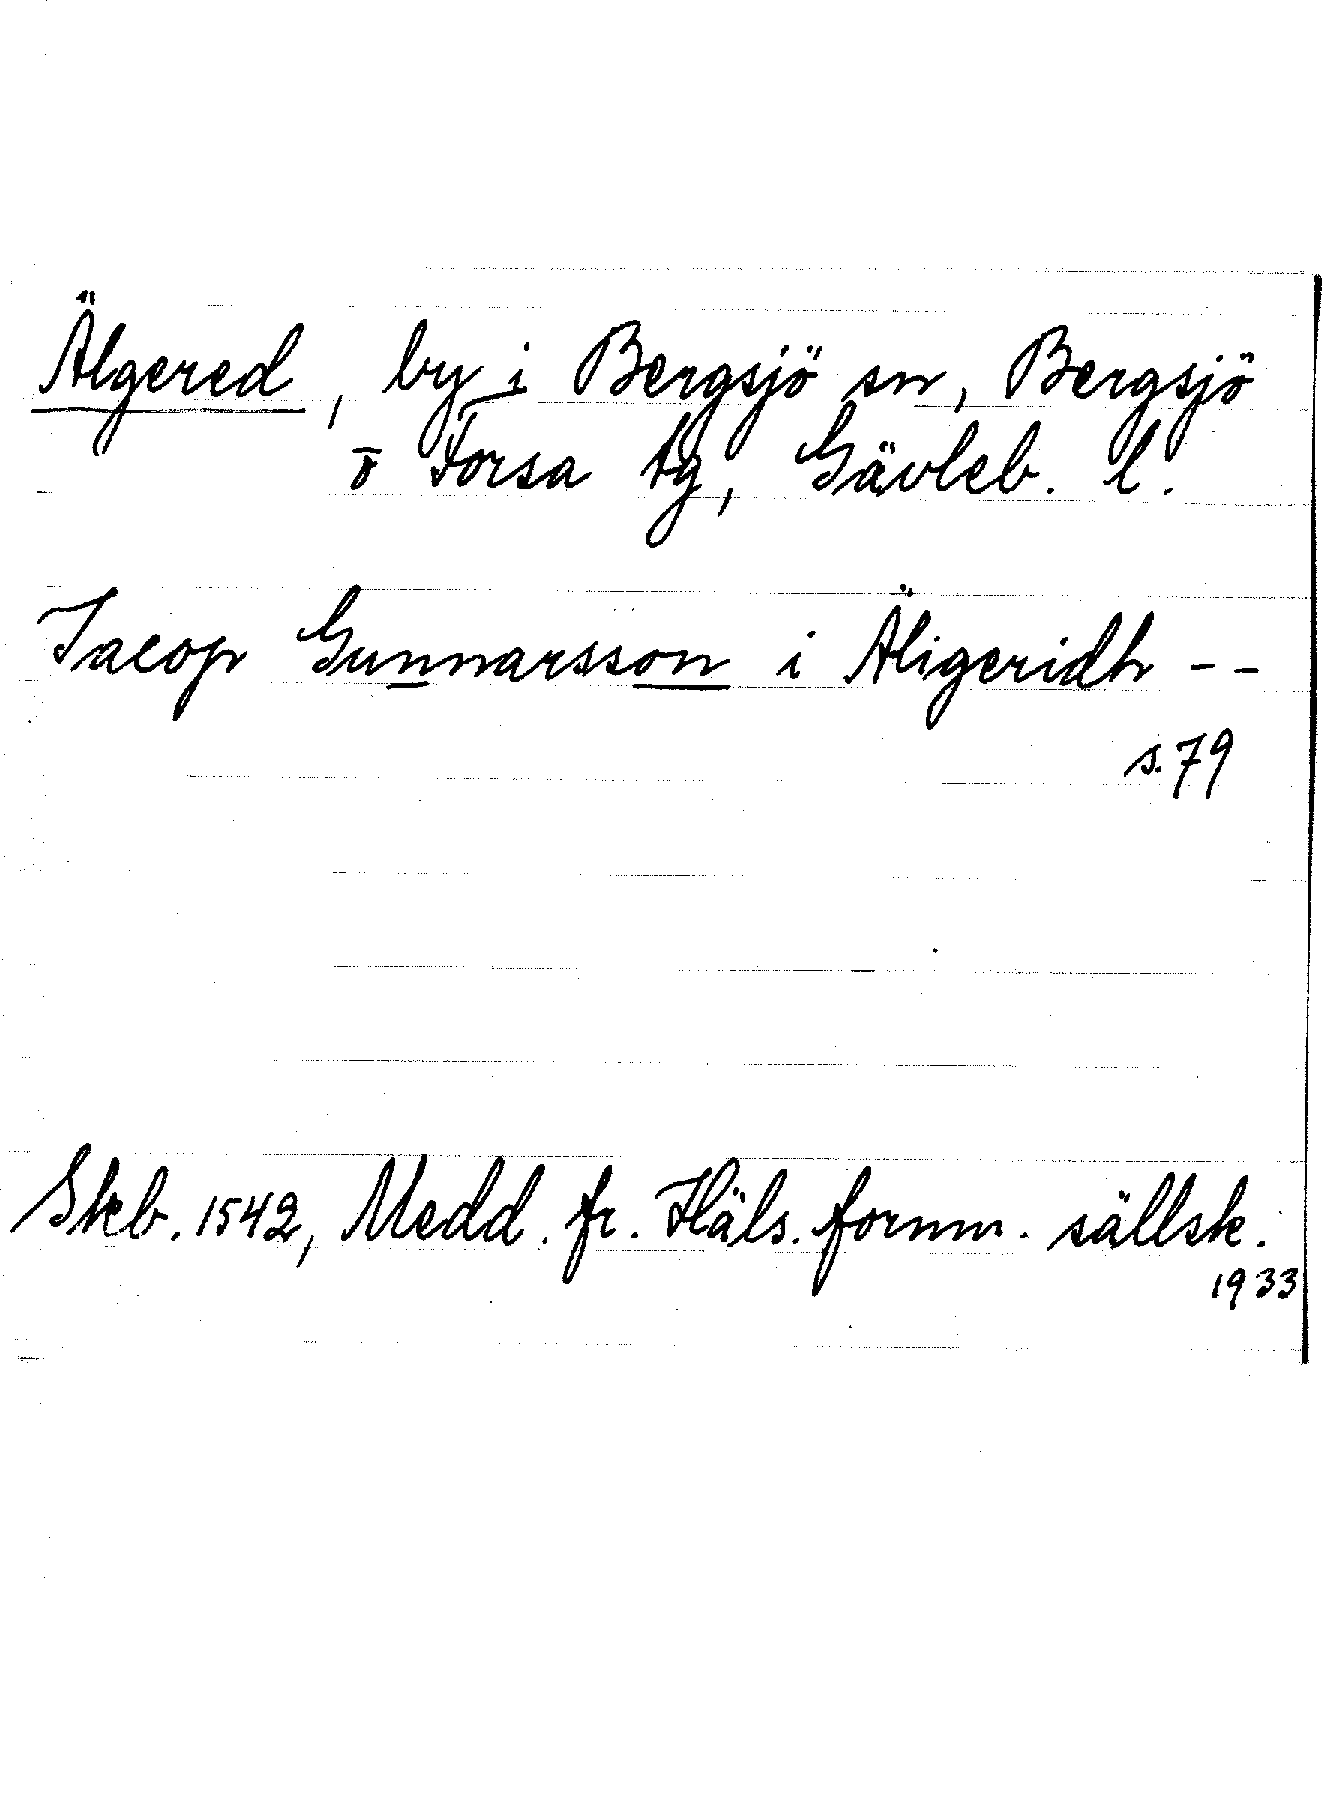 Älgered, by i Bergsjö sn, Bergsjö
o Forsa tg, Gävleb. l.
Jacop Gunnarsson i Äligeridh - -
s. 79
Skb. 1542, Medd. fr. Häls. fornm. sällsk.
1933